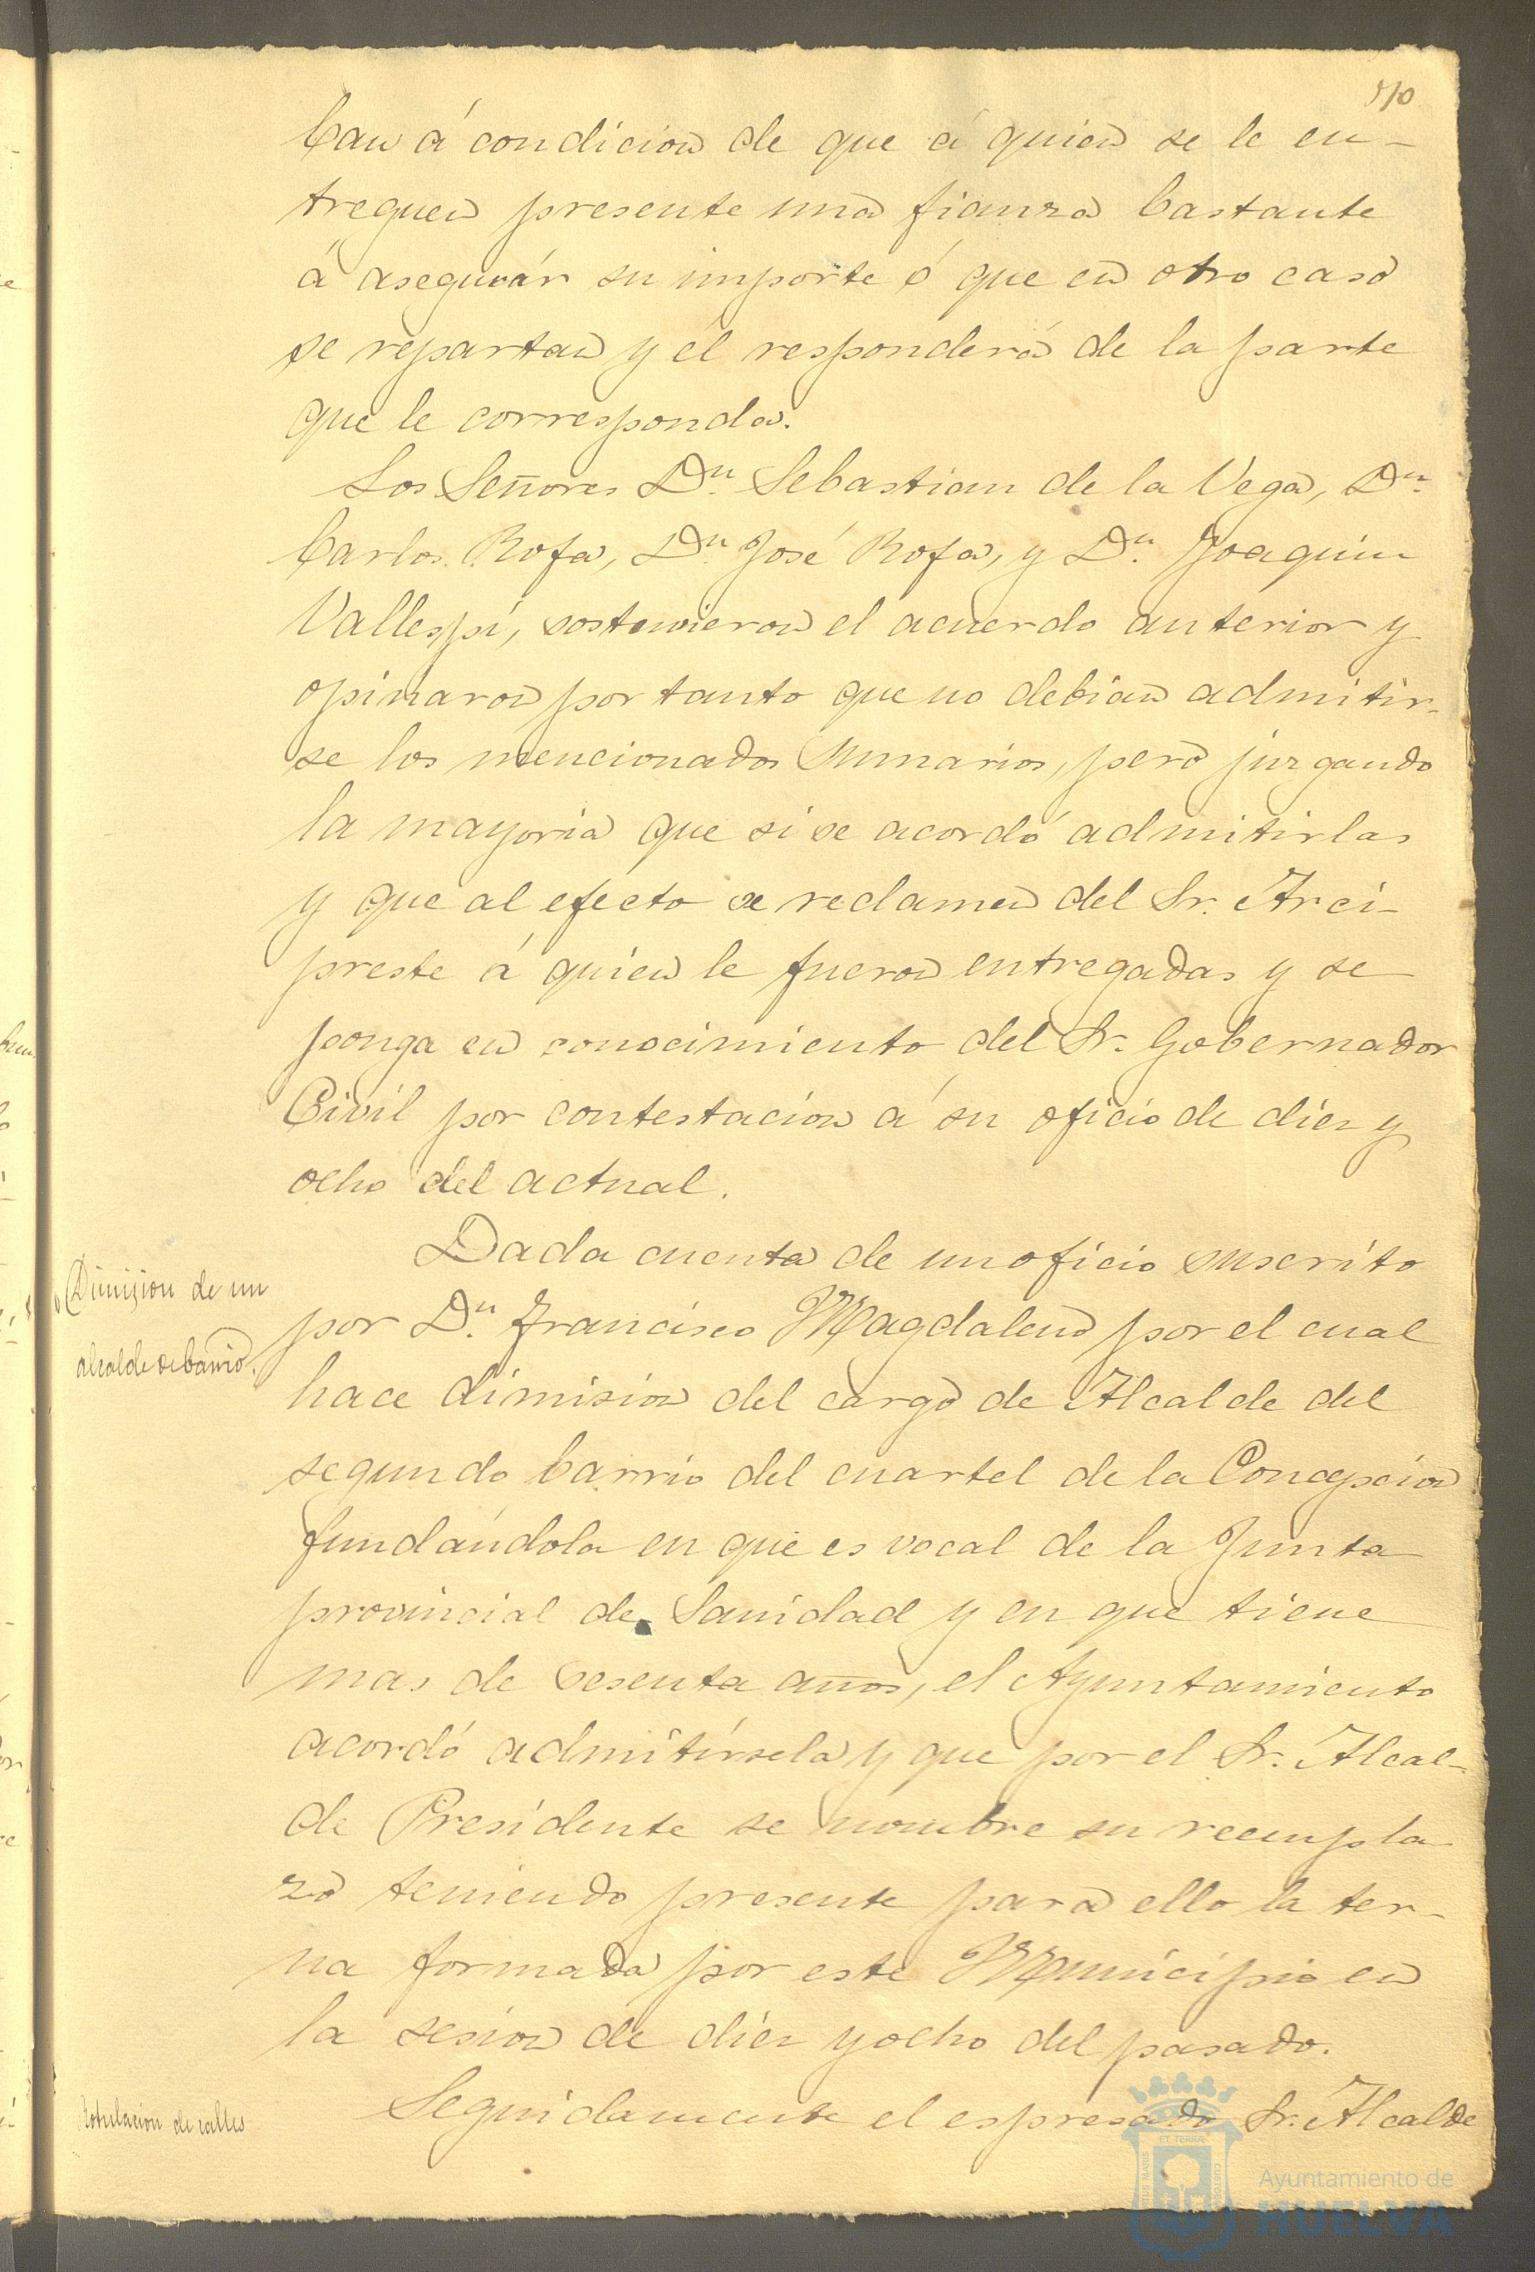 570
ban á condicion de que á quien se le en-
treguen presente una fianza bastante
á asegurár su importe ó que en otro caso
se repartan y él responderá de la parte
que le corresponda.
Los Señores Dn. Sebastian de la Vega, Dn.
Carlos Rofa, Dn. José Rofa, y Dn. Joaquin
Vallespí, sostuvieron el acuerdo anterior y
opinaron por tanto que no debian admitir-
se los mencionados Sumarios, pero juzgando
la mayoria que si se acordó admitirlas
y que al efecto se reclamen del Sr. Arci-
preste á quien le fueron entregadas y se
ponga en conocimiento del Sr. Gobernador
Civil por contestacion á su oficio de diez y
ocho del actual.
Dimision de un
alcalde de barrio.
Dada cuenta de un oficio suscrito
por Dn. Francisco Magdaleno por el cual
hace dimision del cargo de Alcalde del
segundo barrio del cuartel de la Concepcion
fundándola en que es vocal de la Junta
provincial de Sanidad y en que tiene
mas de sesenta años, el Ayuntamiento
acordó admitírsela y que por el Sr. Alcal-
de Presidente se nombre su reempla
zo teniendo presente para ello la ter-
na formada por este Municipio en
la sesion de diez y ocho del pasado.
Rotulacion de calles
Seguidamente el espresado Sr. Alcalde
Ayuntamiento de
HUELVA